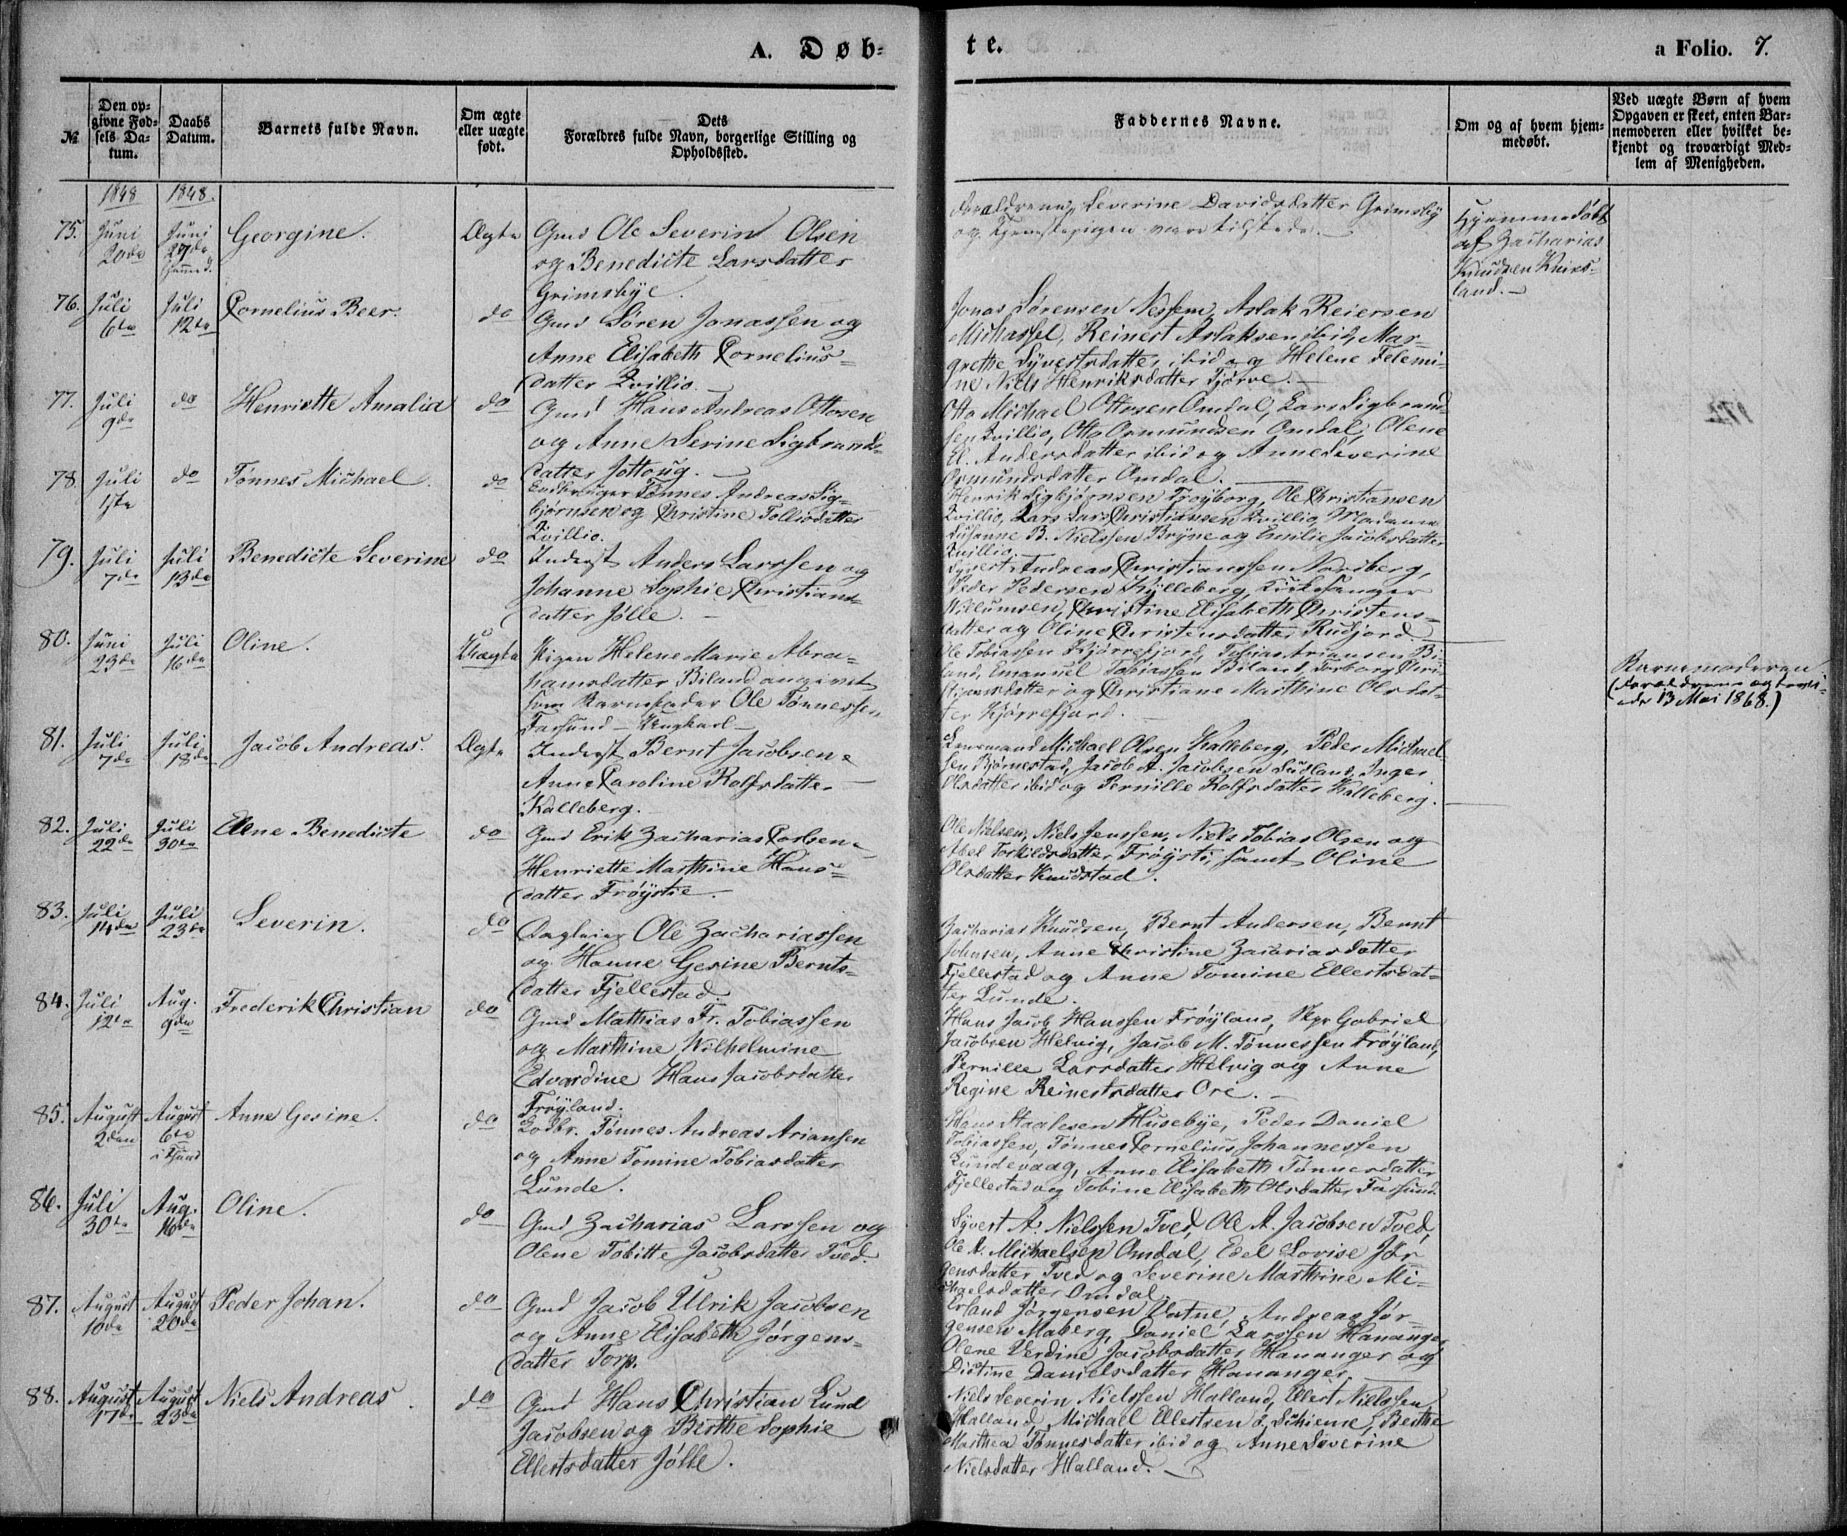 A. Døb-
te.
a Folio. 7.
№
Den op-
givne Fød-
sels Da-
tum.
Daabs
Datum.
Barnets fulde Navn.
Om ægte
eller uægte
født.
Dets
Forældres fulde Navn, borgerlige Stilling og
Opholdssted.
Faddernes Navne.
Om og af hvem hjem-
medøbt.
Ved uægte Børn af hvem
Opgaven er skeet, enten Bar-
nemoderen eller hvilket be-
kjendt og troværdigt Med-
lem af Menigheden.
1848
1848.
75.
Juni
20de
Juni
27de
Georgine.
Ægte
Gmd Ole Severin Olsen
og Benedicte Larsdatter
Grimsbye.
Forældrene, Severine Davidsdatter Grimsby
og Tjenestepigen vare tilstede.
Hjemmedøbt
af Zacharias
Knudsen Knives-
land.
76.
Juli
6te
Juli
12te
Cornelius Beer.
do
Gmd Søren Jonassen og
Anne Elisabeth Cornelius-
datter Qvillio.
Jonas Sørensen Nessem, Aslak Reiersen
Michassel, Reinert Aslaksen ibid, Mar-
grethe Syvertsdatter ibid og Helene Telemi-
ne Niels Henriksdatter Tjørve.
77.
Juli
9de
do
Henriette Amalia
do
Gmd Hans Andreas Ottosen
og Anne Serine Sigbrands-
datter Jottoug.
Otto Michael Ottosen Omdal, Lars Sigbrand-
sen Qvillio, Otto Osmundsen Omdal, Olene
El. Andersdatter ibid og Anne Severine
Osmundsdatter Omdal.
78.
Juli
1ste
do
Tønnes Michael.
do
Lodbringer Tønnes Andreas Sig-
bjørnsen og Christine Tollisdatter
Qvillio.
Henrik Sigbjørnsen Frøyborg, Ole Christiansen
Qvillio, Lars Lars Christiansen Qvillio, Madame
Susanne B. Nielssen Bryne og Emilie Jacobsdatter
Qvillio.
79.
Juli
7de
Juli
13de
Benedicte Severine
do
Inderst Anders Larssen og
Johanne Sophie Christians-
datter Jølle.
Syvert Andreas Christianssen Nordberg,
Peder Pedersen Kylleberg, Kirkesanger
Willumsen, Christine Elisabeth Christens-
datter og Oline Christensdatter Rudjord.
80.
Juni
23de
Juli
16de
Oline.
Uægte
Pigen Helene Marie Abra-
hamsdatter Biland angivet
som Barnefader Ole Tønnessen
Farsund - Ungkarl
Ole Tobiassen Kjørrefjord, Tobias Ariansen Bi-
land, Emanuel Tobiassen Biland, Torborg Chri-
stiansdatter og Christiane Marthine Olsdat-
ter Kjørrefjord.
Barnemoderen
(Forældrene ægtevi-
ede 13 Mai 1868.)
81.
Juli
7de
Juli
18de
Jacob Andreas.
Ægte
Inderst Bernt Jacobsen &
Anne Caroline Rolfsdatter
Kalleberg.
Lensmand Michael Olsen Kalleberg, Peder Michael-
sen Bjørnestad, Jacob A. Jacobsen Sudland, Inger
Olsdatter ibid og Pernille Rolfsdatter Kalleberg.
82.
Juli
22de
Juli
30te
Elene Benedicte
do
Gmd Erik Zacharias Corben &
Henriette Marthine Hans-
datter Frøystie.
Ole Nielsen, Niels Jenssen, Niels Tobias Olsen og
Abel Torkildsdatter Frøysti, samt Oline
Olsdatter Knudstad.
83.
Juli
14de
Juli
23de
Severin.
do
Dagleier Ole Zachariassen
og Hanne Gesine Bernts-
datter Fjellestad.
Zacharias Knudsen, Bernt Andersen, Bernt
Johnsen, Anne Christine Zacariasdatter
Fjellestad og Anne Tomine Ellertsdat-
ter Lunde.
84.
Juli
12te
Aug.
9de
Frederik Christian
do
Gmd Mathias Fr. Tobiassen
og Marthine Wilhelmine
Edvardine Hans Jacobsdatter
Frøyland.
Hans Jacob Hanssen Frøyland, Skpr Gabriel
Jacobsen Helvig, Jacob M. Tønnessen Frøyland,
Pernille Larsdatter Helvig og Anne
Regine Reinertsdatter Ore.
85.
August
2den
August
6te
i Fsund
Anne Gesine.
do
Lodbr. Tønnes Andreas Ariansen
og Anne Tomine Tobiasdatter
Lunde.
Hans Staalesen Husebye, Peder Daniel
Tobiassen, Tønnes Cornelius Johannessen
Lundevaag, Anne Elisabeth Tønnesdatter
Fjellestad og Tobine Elisabeth Olsdatter Farsund.
86.
Juli
30te
Aug.
16de
Oline.
do
Gmd Zacharias Larssen og
Olene Tobitte Jacobsdatter Tved.
Syvert A. Nielssen Tved, Ole A. Jacobsen Tved,
Ole A. Michaelsen Omdal, Edel Lovise Jør-
gensdatter Tved og Severine Marthine Mi-
chaelsdatter Omdal.
87.
August
10de
August
20de
Peder Johan.
do
Gmd Jacob Ulrik Jacobsen
og Anne Elisabeth Jørgens-
datter Torp.
Erland Jørgensen Vatne, Andreas Jør-
gensen Maberg, Daniel Larssen Hananger
Olene Verdine Jacobsdatter Hananger og
Distine Danielsdatter Hananger.
88.
August
17de
August
23de
Niels Andreas.
do
Gmd Hans Christian Lund
Jacobsen og Birthe Sophie
Ellertsdatter Jølle.
Niels Severin Nielssen Halland, Ellert Nielssen
Halland, Michael Ellertsen Ø. Skieme, Berthe
Marthea Tønnesdatter ibid og Anne Severine
Nielsdatter Halland.